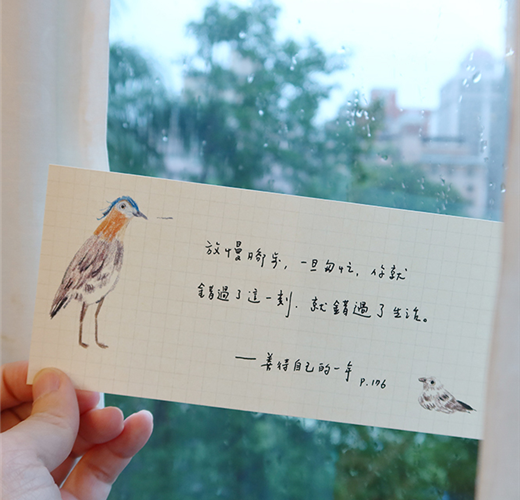 放慢腳步，一旦匆忙，你就
錯過了這一刻，就錯過了生活。
——善待自己的一年 p.176